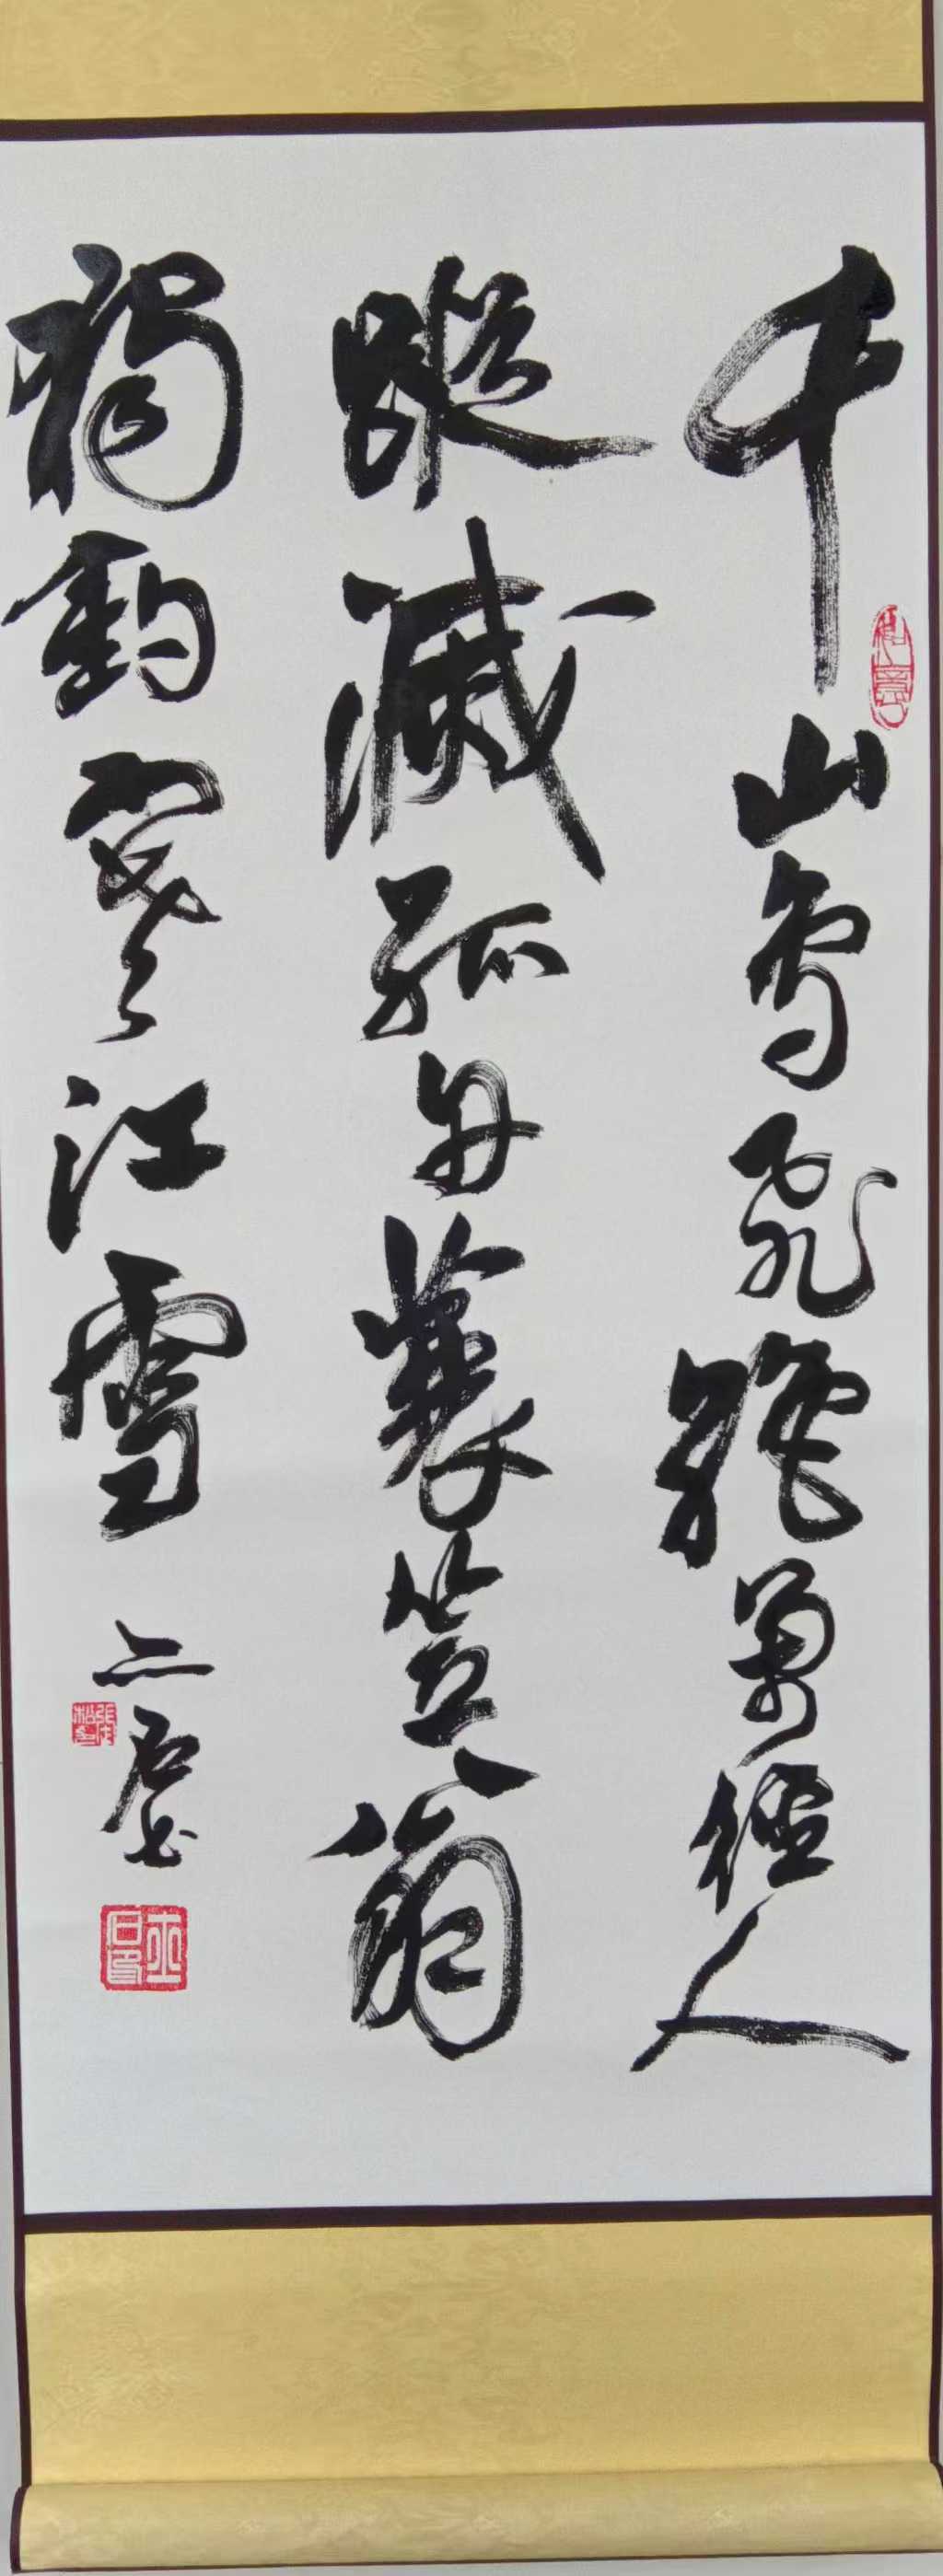 千山鳥飛絕萬徑人
蹤滅孤舟蓑笠翁
獨釣寒江雪